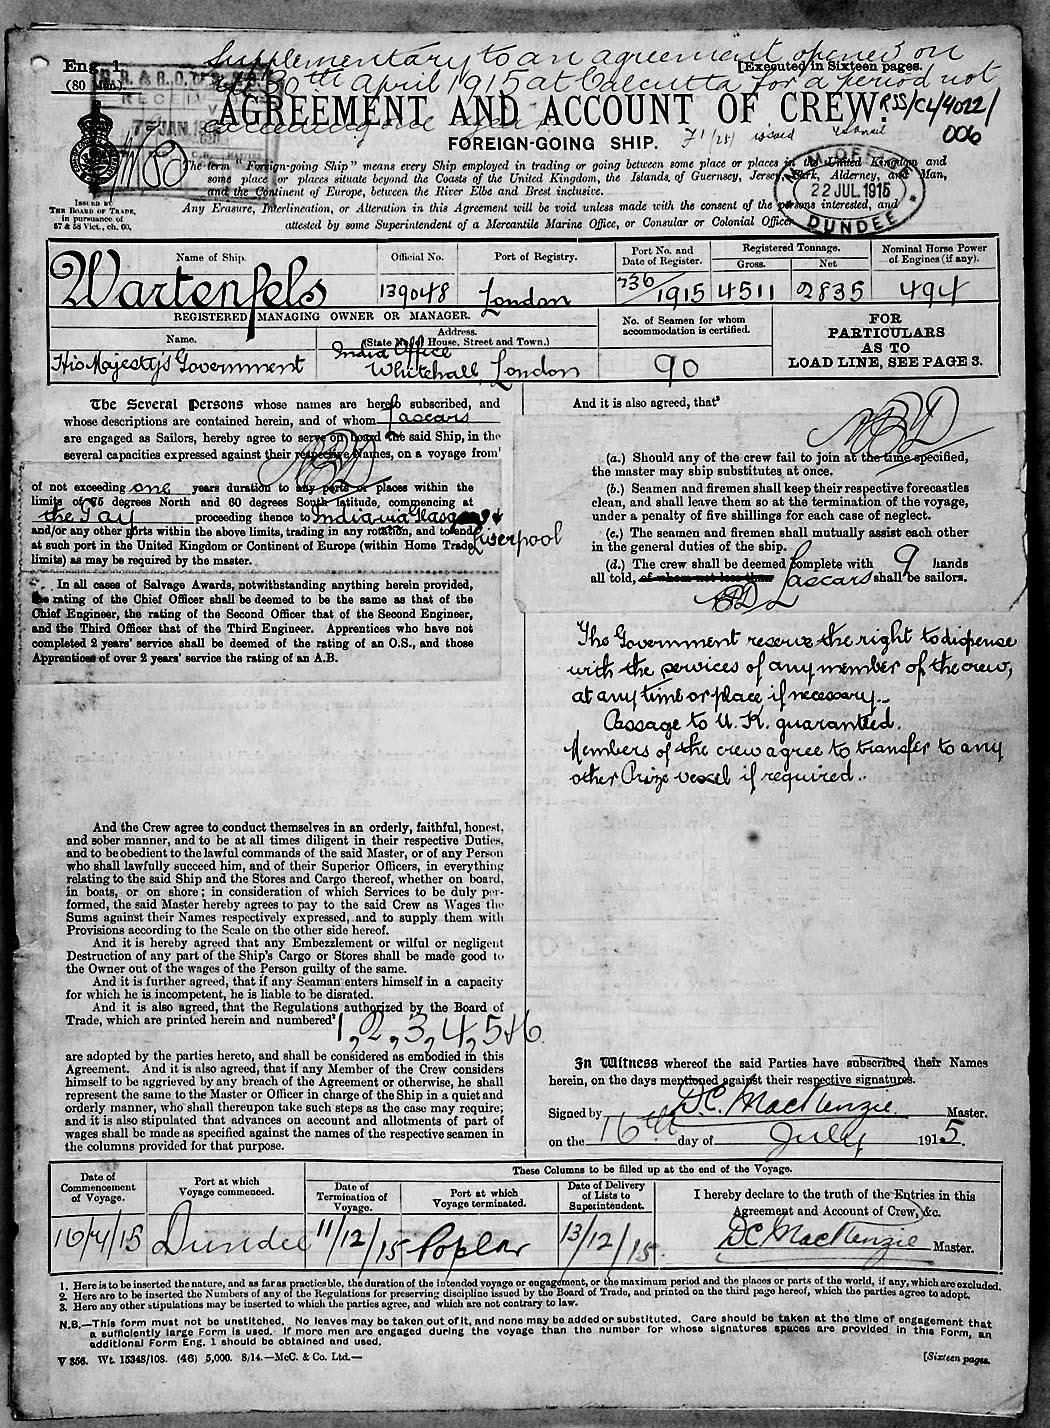 Supplementary to an agreement opened on
the 30th April 1915 at Calcutta for a period not
exceeding one year
Eng. 1
(80 Men.)
[Executed in Sixteen pages.
RECEIVED
JAN.
AGREEMENT AND ACCOUNT OF CREW.
RSS/CL/4022/
006
FOREIGN-GOING SHIP.
issued
The term "Foreign-going Ship" means every Ship employed in trading or going between some place or places in the United Kingdom and
some place or places situate beyond the Coasts of the United Kingdom, the Islands of Guernsey, Jersey, Sark, Alderney, and Man,
and the Continent of Europe, between the River Elbe and Brest inclusive.
22 JUL 1915
DUNDEE
ISSUED BY
THE BOARD OF TRADE,
in pursuance of
57 & 58 Vict., ch. 60.
Any Erasure, Interlineation, or Alteration in this Agreement will be void unless made with the consent of the persons interested, and
attested by some Superintendent of a Mercantile Marine Office, or Consular or Colonial Officer.
Name of Ship. Official No. Port of Registry. Port No. and Date of Register. Registered Tonnage. Gross. Net Nominal Horse Power of Engines (if any).
Wartenfels 139048 London 736/1915 4511 2835 494
REGISTERED MANAGING OWNER OR MANAGER.
Name. Address. (State No. of House, Street and Town.) No. of Seamen for whom accommodation is certified.
His Majesty's Government India Office
Whitehall, London 90
FOR
PARTICULARS
AS TO
LOAD LINE, SEE PAGE 3.
The Several Persons whose names are hereto subscribed, and
whose descriptions are contained herein, and of whom Lascars
are engaged as Sailors, hereby agree to serve on board the said Ship, in the
several capacities expressed against their respective Names, on a voyage from¹
of not exceeding one years duration to any ports or places within the
limits of 75 degrees North and 60 degrees South latitude, commencing at
the Tay proceeding thence to India via Glasgow &
Liverpool
and/or any other ports within the above limits, trading in any rotation, and to end
at such port in the United Kingdom or Continent of Europe (within Home Trade
limits) as may be required by the master.
In all cases of Salvage Awards, notwithstanding anything herein provided,
the rating of the Chief Officer shall be deemed to be the same as that of the
Chief Engineer, the rating of the Second Officer that of the Second Engineer,
and the Third Officer that of the Third Engineer. Apprentices who have not
completed 2 years' service shall be deemed of the rating of an O.S., and those
Apprentices of over 2 years' service the rating of an A.B.
And the Crew agree to conduct themselves in an orderly, faithful, honest,
and sober manner, and to be at all times diligent in their respective Duties,
and to be obedient to the lawful commands of the said Master, or of any Person
who shall lawfully succeed him, and of their Superior Officers, in everything
relating to the said Ship and the Stores and Cargo thereof, whether on board,
in boats, or on shore; in consideration of which Services to be duly per-
formed, the said Master hereby agrees to pay to the said Crew as Wages the
Sums against their Names respectively expressed, and to supply them with
Provisions according to the Scale on the other side hereof.
And it is hereby agreed that any Embezzlement or wilful or negligent
Destruction of any part of the Ship's Cargo or Stores shall be made good to
the Owner out of the wages of the Person guilty of the same.
And it is further agreed, that if any Seaman enters himself in a capacity
for which he is incompetent, he is liable to be disrated.
And it is also agreed, that the Regulations authorized by the Board of
Trade, which are printed herein and numbered² 1, 2, 3, 4, 5 & 6
are adopted by the parties hereto, and shall be considered as embodied in this
Agreement. And it is also agreed, that if any Member of the Crew considers
himself to be aggrieved by any breach of the Agreement or otherwise, he shall
represent the same to the Master or Officer in charge of the Ship in a quiet and
orderly manner, who shall thereupon take such steps as the case may require;
and it is also stipulated that advances on account and allotments of part of
wages shall be made as specified against the names of the respective seamen in
the columns provided for that purpose.
And it is also agreed, that³
(a.) Should any of the crew fail to join at the time specified,
the master may ship substitutes at once.
(b.) Seamen and firemen shall keep their respective forecastles
clean, and shall leave them so at the termination of the voyage,
under a penalty of five shillings for each case of neglect.
(c.) The seamen and firemen shall mutually assist each other
in the general duties of the ship.
(d.) The crew shall be deemed complete with 9 hands
all told, of whom not less than Lascars shall be sailors.
The Government reserve the right to dispense
with the services of any member of the crew,
at any time or place if necessary.
Passage to U.K. guaranteed.
Members of the crew agree to transfer to any
other Prize vessel if required.
In Witness whereof the said Parties have subscribed their Names
herein, on the days mentioned against their respective signatures.
Signed by D.C. MacKenzie Master.
on the 16th day of July 1915.
These Columns to be filled up at the end of the Voyage.
Date of Commencement of Voyage. Port at which Voyage commenced. Date of Termination of Voyage. Port at which Voyage terminated. Date of Delivery of Lists to Superintendent.
I hereby declare to the truth of the Entries in this
Agreement and Account of Crew, &c.
16/7/15 Dundee 11/12/15 Poplar 13/12/15. D.C. MacKenzie Master.
1. Here is to be inserted the nature, and as far as practicable, the duration of the intended voyage or engagement, or the maximum period and the places or parts of the world, if any, which are excluded.
2. Here are to be inserted the Numbers of any of the Regulations for preserving discipline issued by the Board of Trade, and printed on the third page hereof, which the parties agree to adopt.
3. Here any other stipulations may be inserted to which the parties agree, and which are not contrary to law.
N.B.—This form must not be unstitched. No leaves may be taken out of it, and none may be added or substituted. Care should be taken at the time of engagement that
a sufficiently large Form is used. If more men are engaged during the voyage than the number for whose signatures spaces are provided in this Form, an
additional Form Eng. 1 should be obtained and used.
V 356. Wt. 15348/108. (46) 5,000. 8/14.—McC. & Co. Ltd.—
[Sixteen pages.